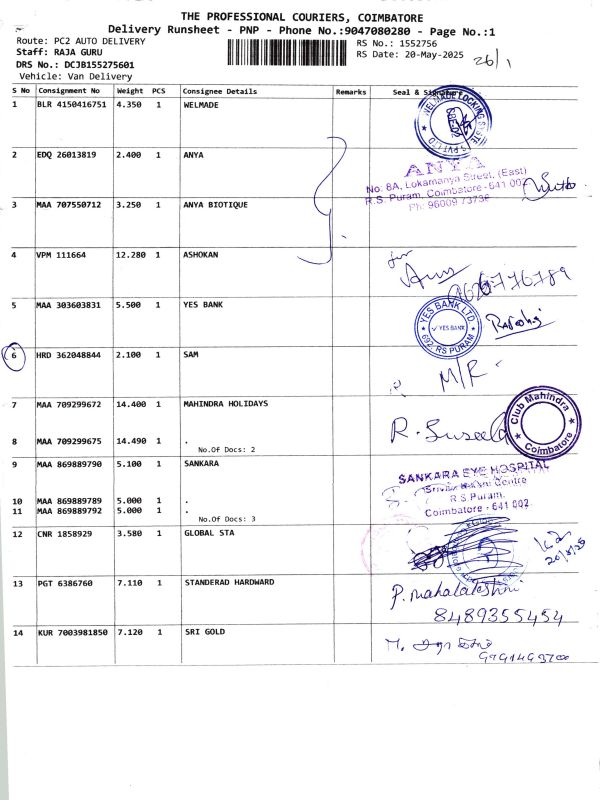 THE PROFESSIONAL COURIERS, COIMBATORE
Delivery Runsheet - PNP - Phone No.:9047080280 - Page No.:1
Route: PC2 AUTO DELIVERY
Staff: RAJA GURU
DRS No.: DCJB155275601
Vehicle: Van Delivery
RS No.: 1552756
RS Date: 20-May-2025
26/1
S No Consignment No Weight PCS Consignee Details Remarks Seal & Signature
1 BLR 4150416751 4.350 1 WELMADE
WELMADE LOCKING SYSTEMS PVT LTD
2 EDQ 26013819 2.400 1 ANYA
ANYA
No: 8A, Lokamanya Street, (East)
R.S. Puram, Coimbatore - 641 002
Ph: 96009 73736
3 MAA 707550712 3.250 1 ANYA BIOTIQUE
4 VPM 111664 12.280 1 ASHOKAN
for
5 MAA 303603831 5.500 1 YES BANK
YES BANK LTD
YES BANK
692, RS PURAM
6 HRD 362048844 2.100 1 SAM
M/R
7 MAA 709299672 14.400 1 MAHINDRA HOLIDAYS
Club Mahindra
Coimbatore
R. Suseela
8 MAA 709299675 14.490 1 .
No.Of Docs: 2
9 MAA 869889790 5.100 1 SANKARA
SANKARA EYE HOSPITAL
R.S.Puram,
Coimbatore - 641 002.
10 MAA 869889789 5.000 1 .
11 MAA 869889792 5.000 1 .
No.Of Docs: 3
12 CNR 1858929 3.580 1 GLOBAL STA
20/5/25
13 PGT 6386760 7.110 1 STANDERAD HARDWARD
P. mahalakshmi
8489355454
14 KUR 7003981850 7.120 1 SRI GOLD